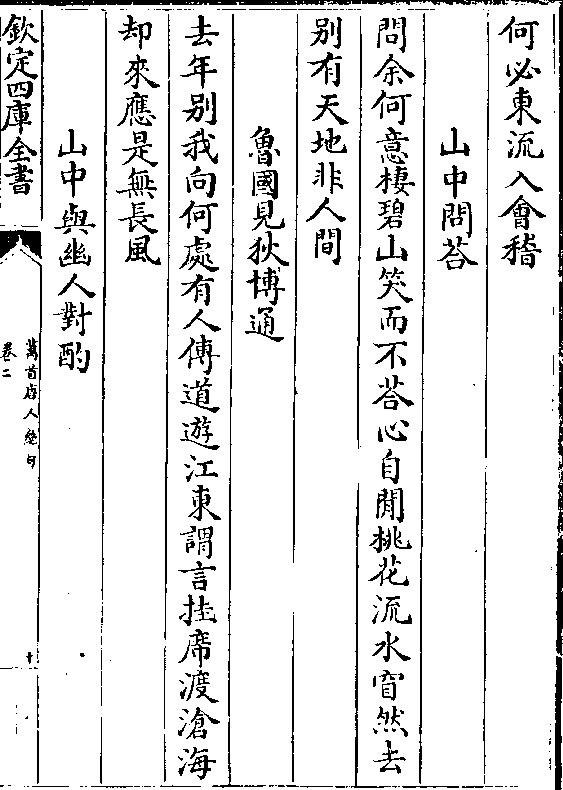 何必東流入㑹稽
山中問荅
問余何意棲碧山笑而不荅心自閒桃花流水窅然去
别有天地非人間
魯國見狄博通
去年别我向何處有人傳道遊江東謂言挂席渡滄海
却來應是無長風
山中與幽人對酌
欽定四庫全書
萬首唐人絶句
卷二
十